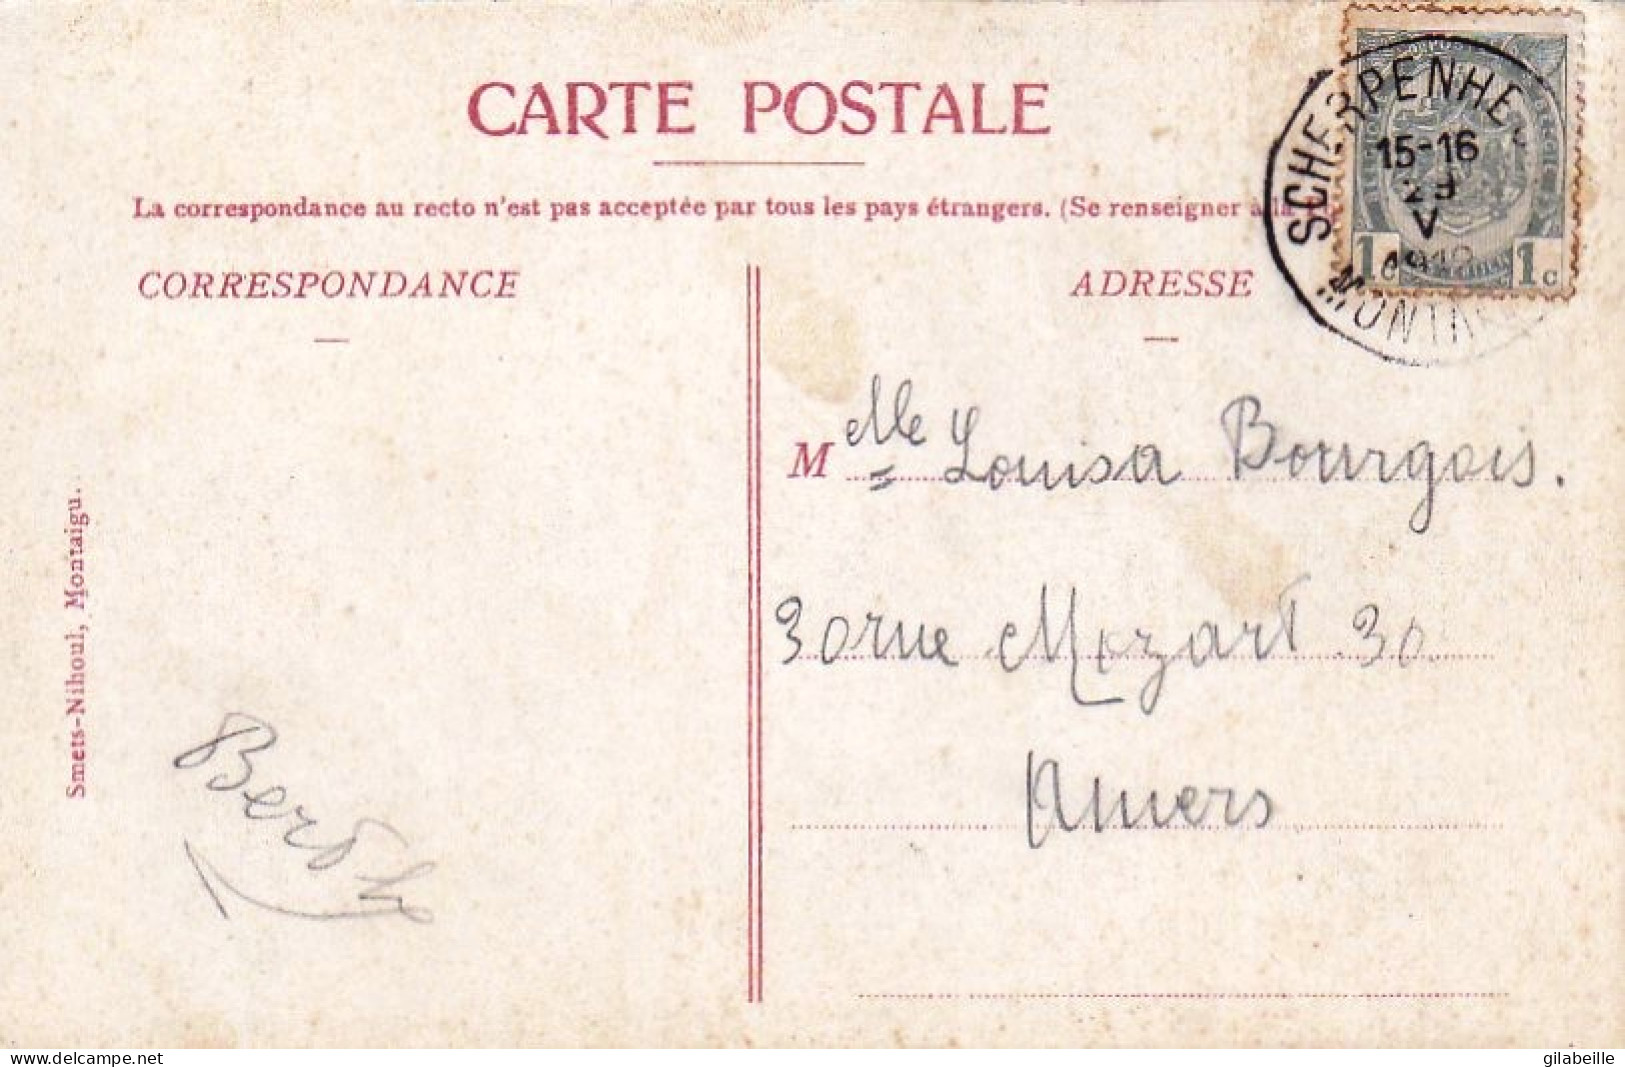 CARTE POSTALE
La correspondance au recto n'est pas acceptée par tous les pays étrangers. (Se renseigner à la
CORRESPONDANCE
ADRESSE
SCHERPENHE
15-16
29
V
MONTAIGU
1 1c
Melle Louisa Bourgois.
30 rue Mozart 30
Anvers
Berthe
Smets-Nihoul, Montaigu.
www.delcampe.net
gilabeille